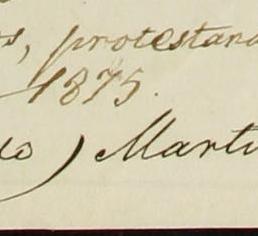 s, protestand
1875.
do) Marti